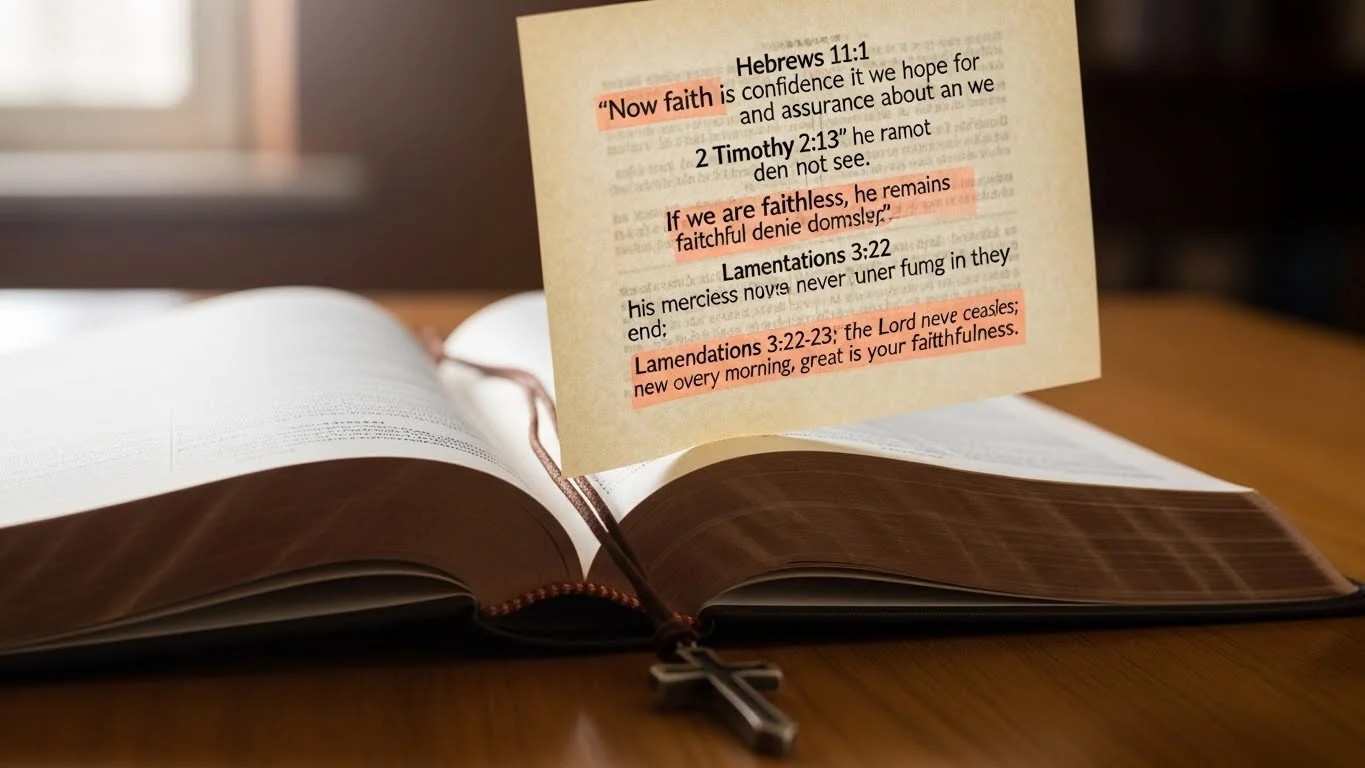 Hebrews 11:1
“Now faith is confidence it we hope for
and assurance about an we
2 Timothy 2:13” he ramot
den not see.
If we are faithless, he remains
faitchful denie domsler.”
Lamentations 3:22
his merciess never uner fumg in they
end:
Lamendations 3:22-23; the Lord neve ceasles;
new overy morning, great is your faithfulness.